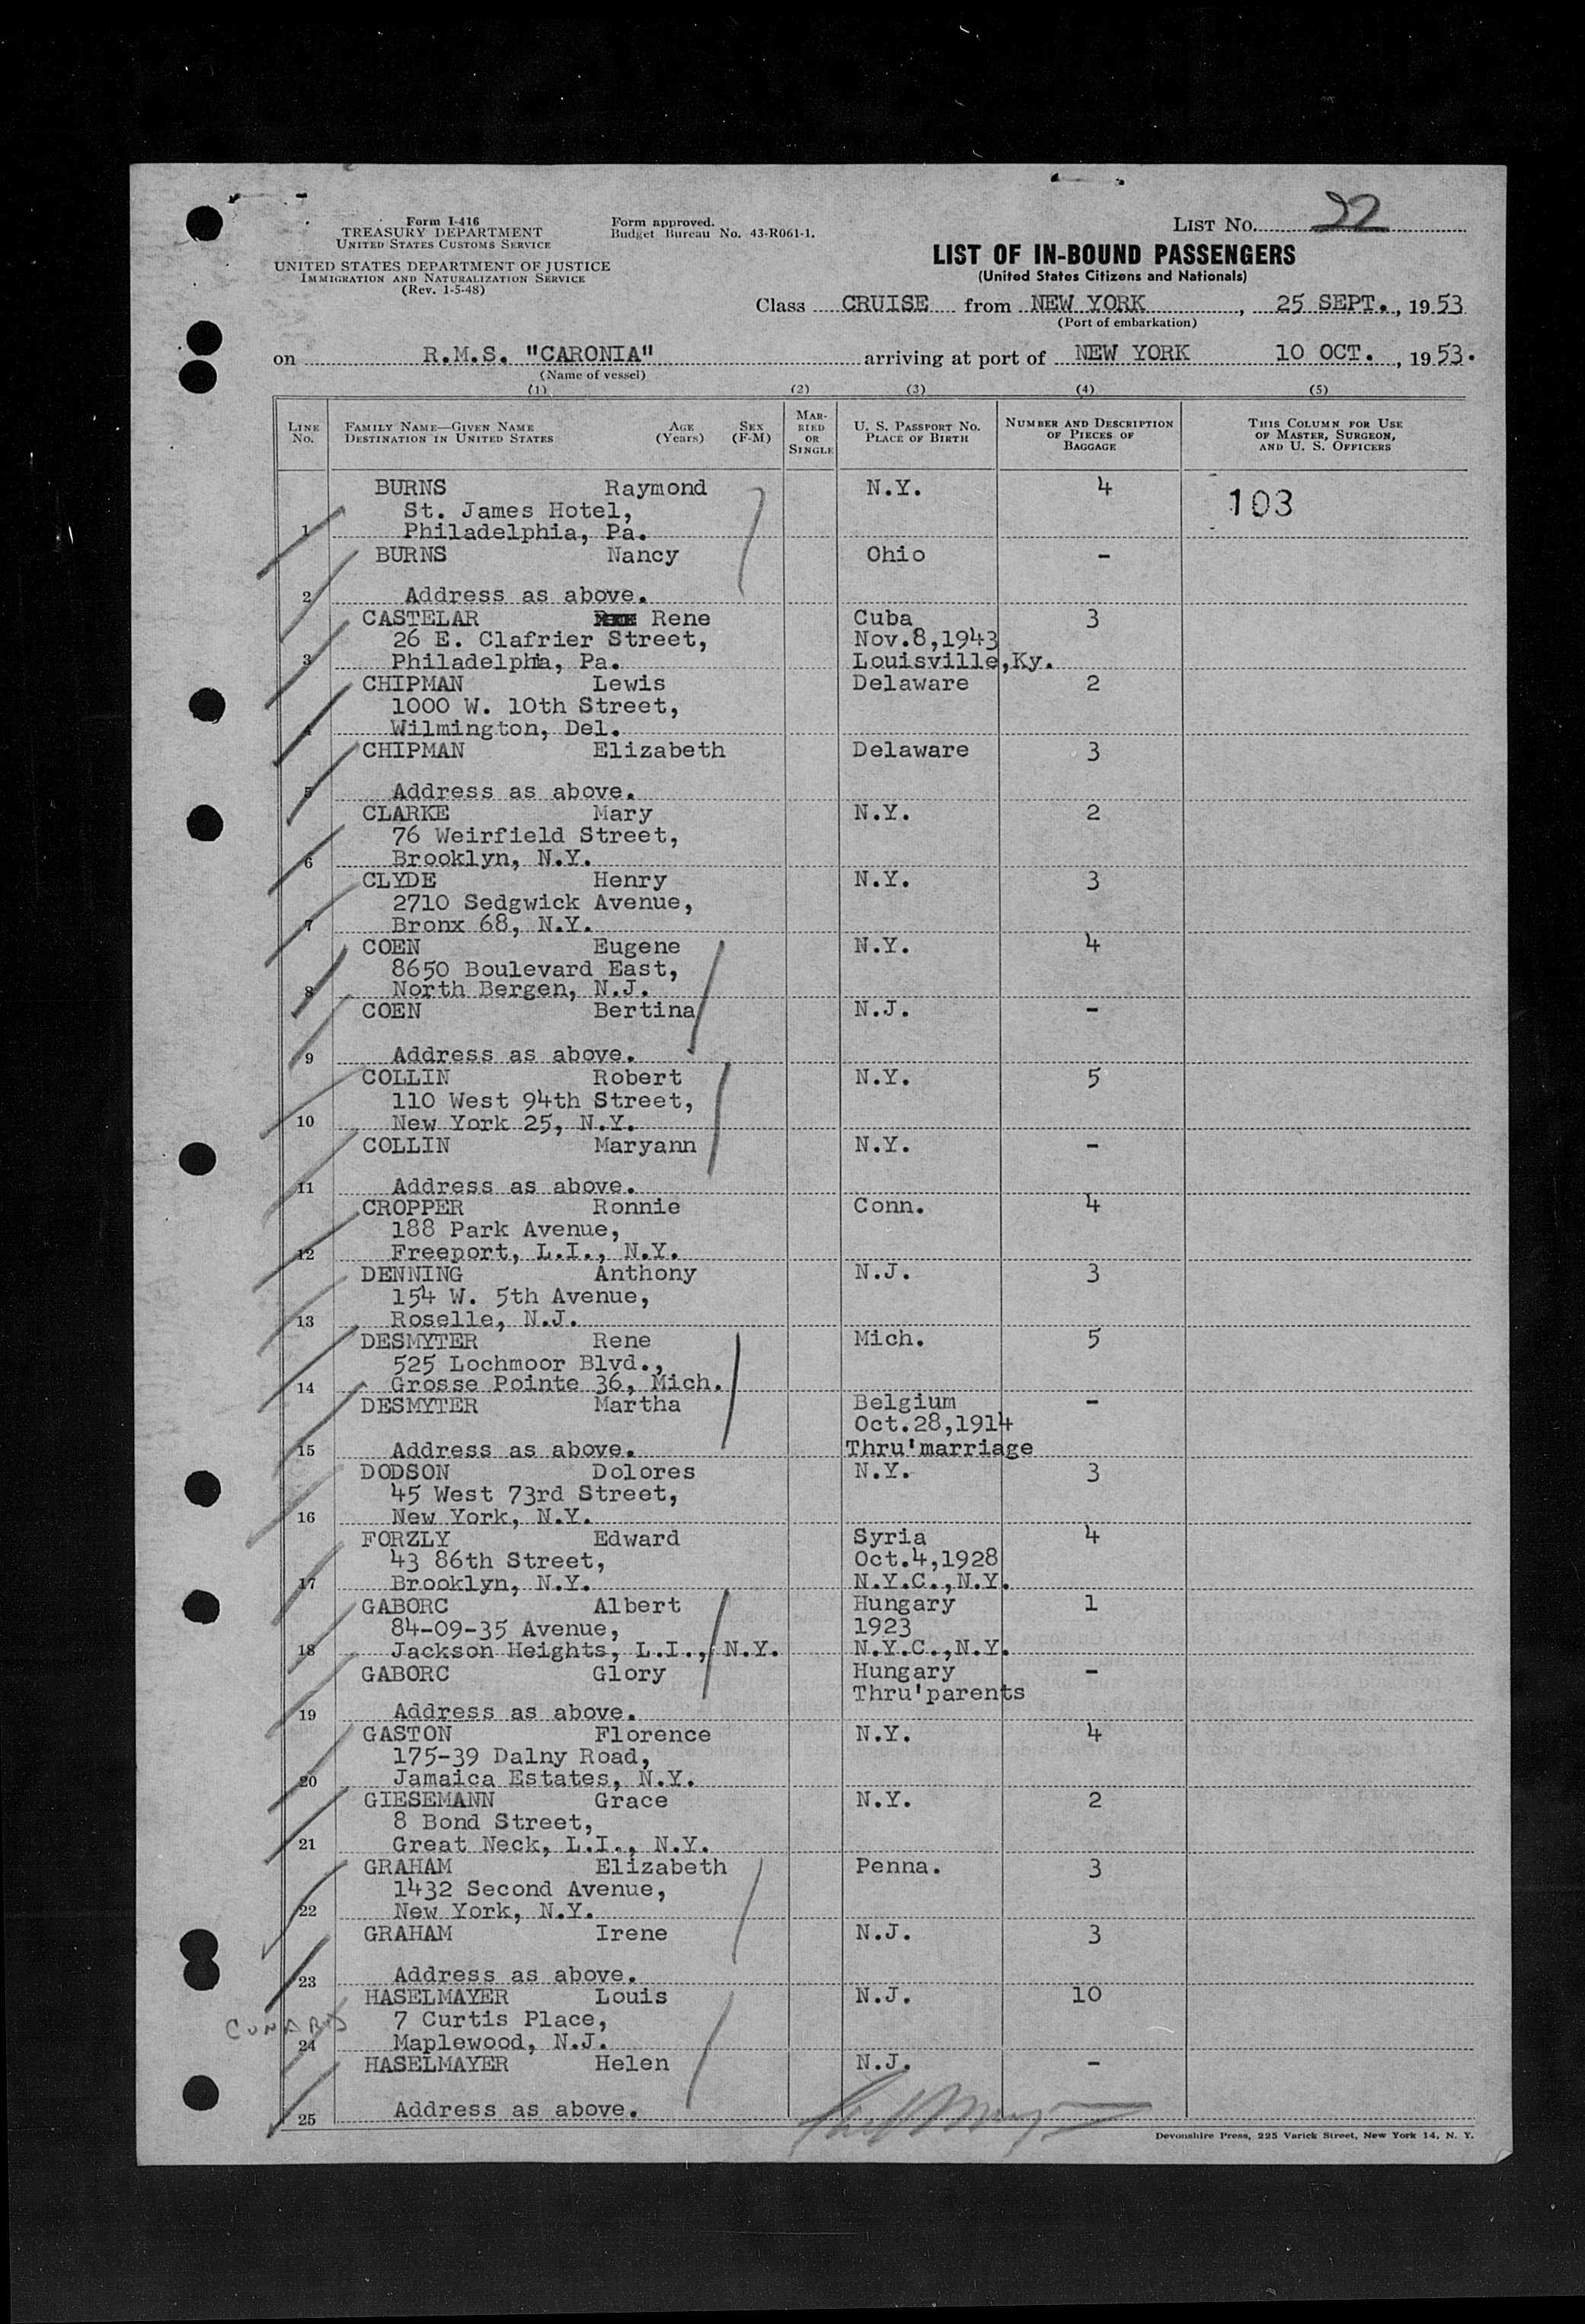 Form I-416
TREASURY DEPARTMENT
UNITED STATES CUSTOMS SERVICE
UNITED STATES DEPARTMENT OF JUSTICE
IMMIGRATION AND NATURALIZATION SERVICE
(Rev. 1-5-48)
Form approved.
Budget Bureau No. 43-R061-1.
LIST No. 22
LIST OF IN-BOUND PASSENGERS
(United States Citizens and Nationals)
Class CRUISE from NEW YORK, 25 SEPT., 1953
(Port of embarkation)
on R.M.S. "CARONIA" arriving at port of NEW YORK 10 OCT., 1953.
(Name of vessel)
(1) (2) (3) (4) (5)
LINE No. FAMILY NAME—GIVEN NAME DESTINATION IN UNITED STATES AGE (Years) SEX (F-M) MARRIED OR SINGLE U. S. PASSPORT No. PLACE OF BIRTH NUMBER AND DESCRIPTION OF PIECES OF BAGGAGE THIS COLUMN FOR USE OF MASTER, SURGEON, AND U. S. OFFICERS
BURNS Raymond N.Y. 4 103
St. James Hotel,
1 Philadelphia, Pa.
BURNS Nancy Ohio -
2 Address as above.
CASTELAR Rene Cuba 3
26 E. Clafrier Street, Nov.8,1943
3 Philadelphia, Pa. Louisville,Ky.
CHIPMAN Lewis Delaware 2
1000 W. 10th Street,
4 Wilmington, Del.
CHIPMAN Elizabeth Delaware 3
5 Address as above.
CLARKE Mary N.Y. 2
76 Weirfield Street,
6 Brooklyn, N.Y.
CLYDE Henry N.Y. 3
2710 Sedgwick Avenue,
7 Bronx 68, N.Y.
COEN Eugene N.Y. 4
8650 Boulevard East,
8 North Bergen, N.J.
COEN Bertina N.J. -
9 Address as above.
COLLIN Robert N.Y. 5
110 West 94th Street,
10 New York 25, N.Y.
COLLIN Maryann N.Y. -
11 Address as above.
CROPPER Ronnie Conn. 4
188 Park Avenue,
12 Freeport, L.I., N.Y.
DENNING Anthony N.J. 3
154 W. 5th Avenue,
13 Roselle, N.J.
DESMYTER Rene Mich. 5
525 Lochmoor Blvd.,
14 Grosse Pointe 36, Mich.
DESMYTER Martha Belgium -
Oct.28,1914
15 Address as above. Thru'marriage
DODSON Dolores N.Y. 3
45 West 73rd Street,
16 New York, N.Y.
FORZLY Edward Syria 4
43 86th Street, Oct.4,1928
17 Brooklyn, N.Y. N.Y.C.,N.Y.
GABORC Albert Hungary 1
84-09-35 Avenue, 1923
18 Jackson Heights, L.I., N.Y. N.Y.C.,N.Y.
GABORC Glory Hungary -
Thru'parents
19 Address as above.
GASTON Florence N.Y. 4
175-39 Dalny Road,
20 Jamaica Estates, N.Y.
GIESEMANN Grace N.Y. 2
8 Bond Street,
21 Great Neck, L.I., N.Y.
GRAHAM Elizabeth Penna. 3
1432 Second Avenue,
22 New York, N.Y.
GRAHAM Irene N.J. 3
23 Address as above.
HASELMAYER Louis N.J. 10
CUNARD 7 Curtis Place,
24 Maplewood, N.J.
HASELMAYER Helen N.J. -
25 Address as above.
Devonshire Press, 225 Varick Street, New York 14, N. Y.